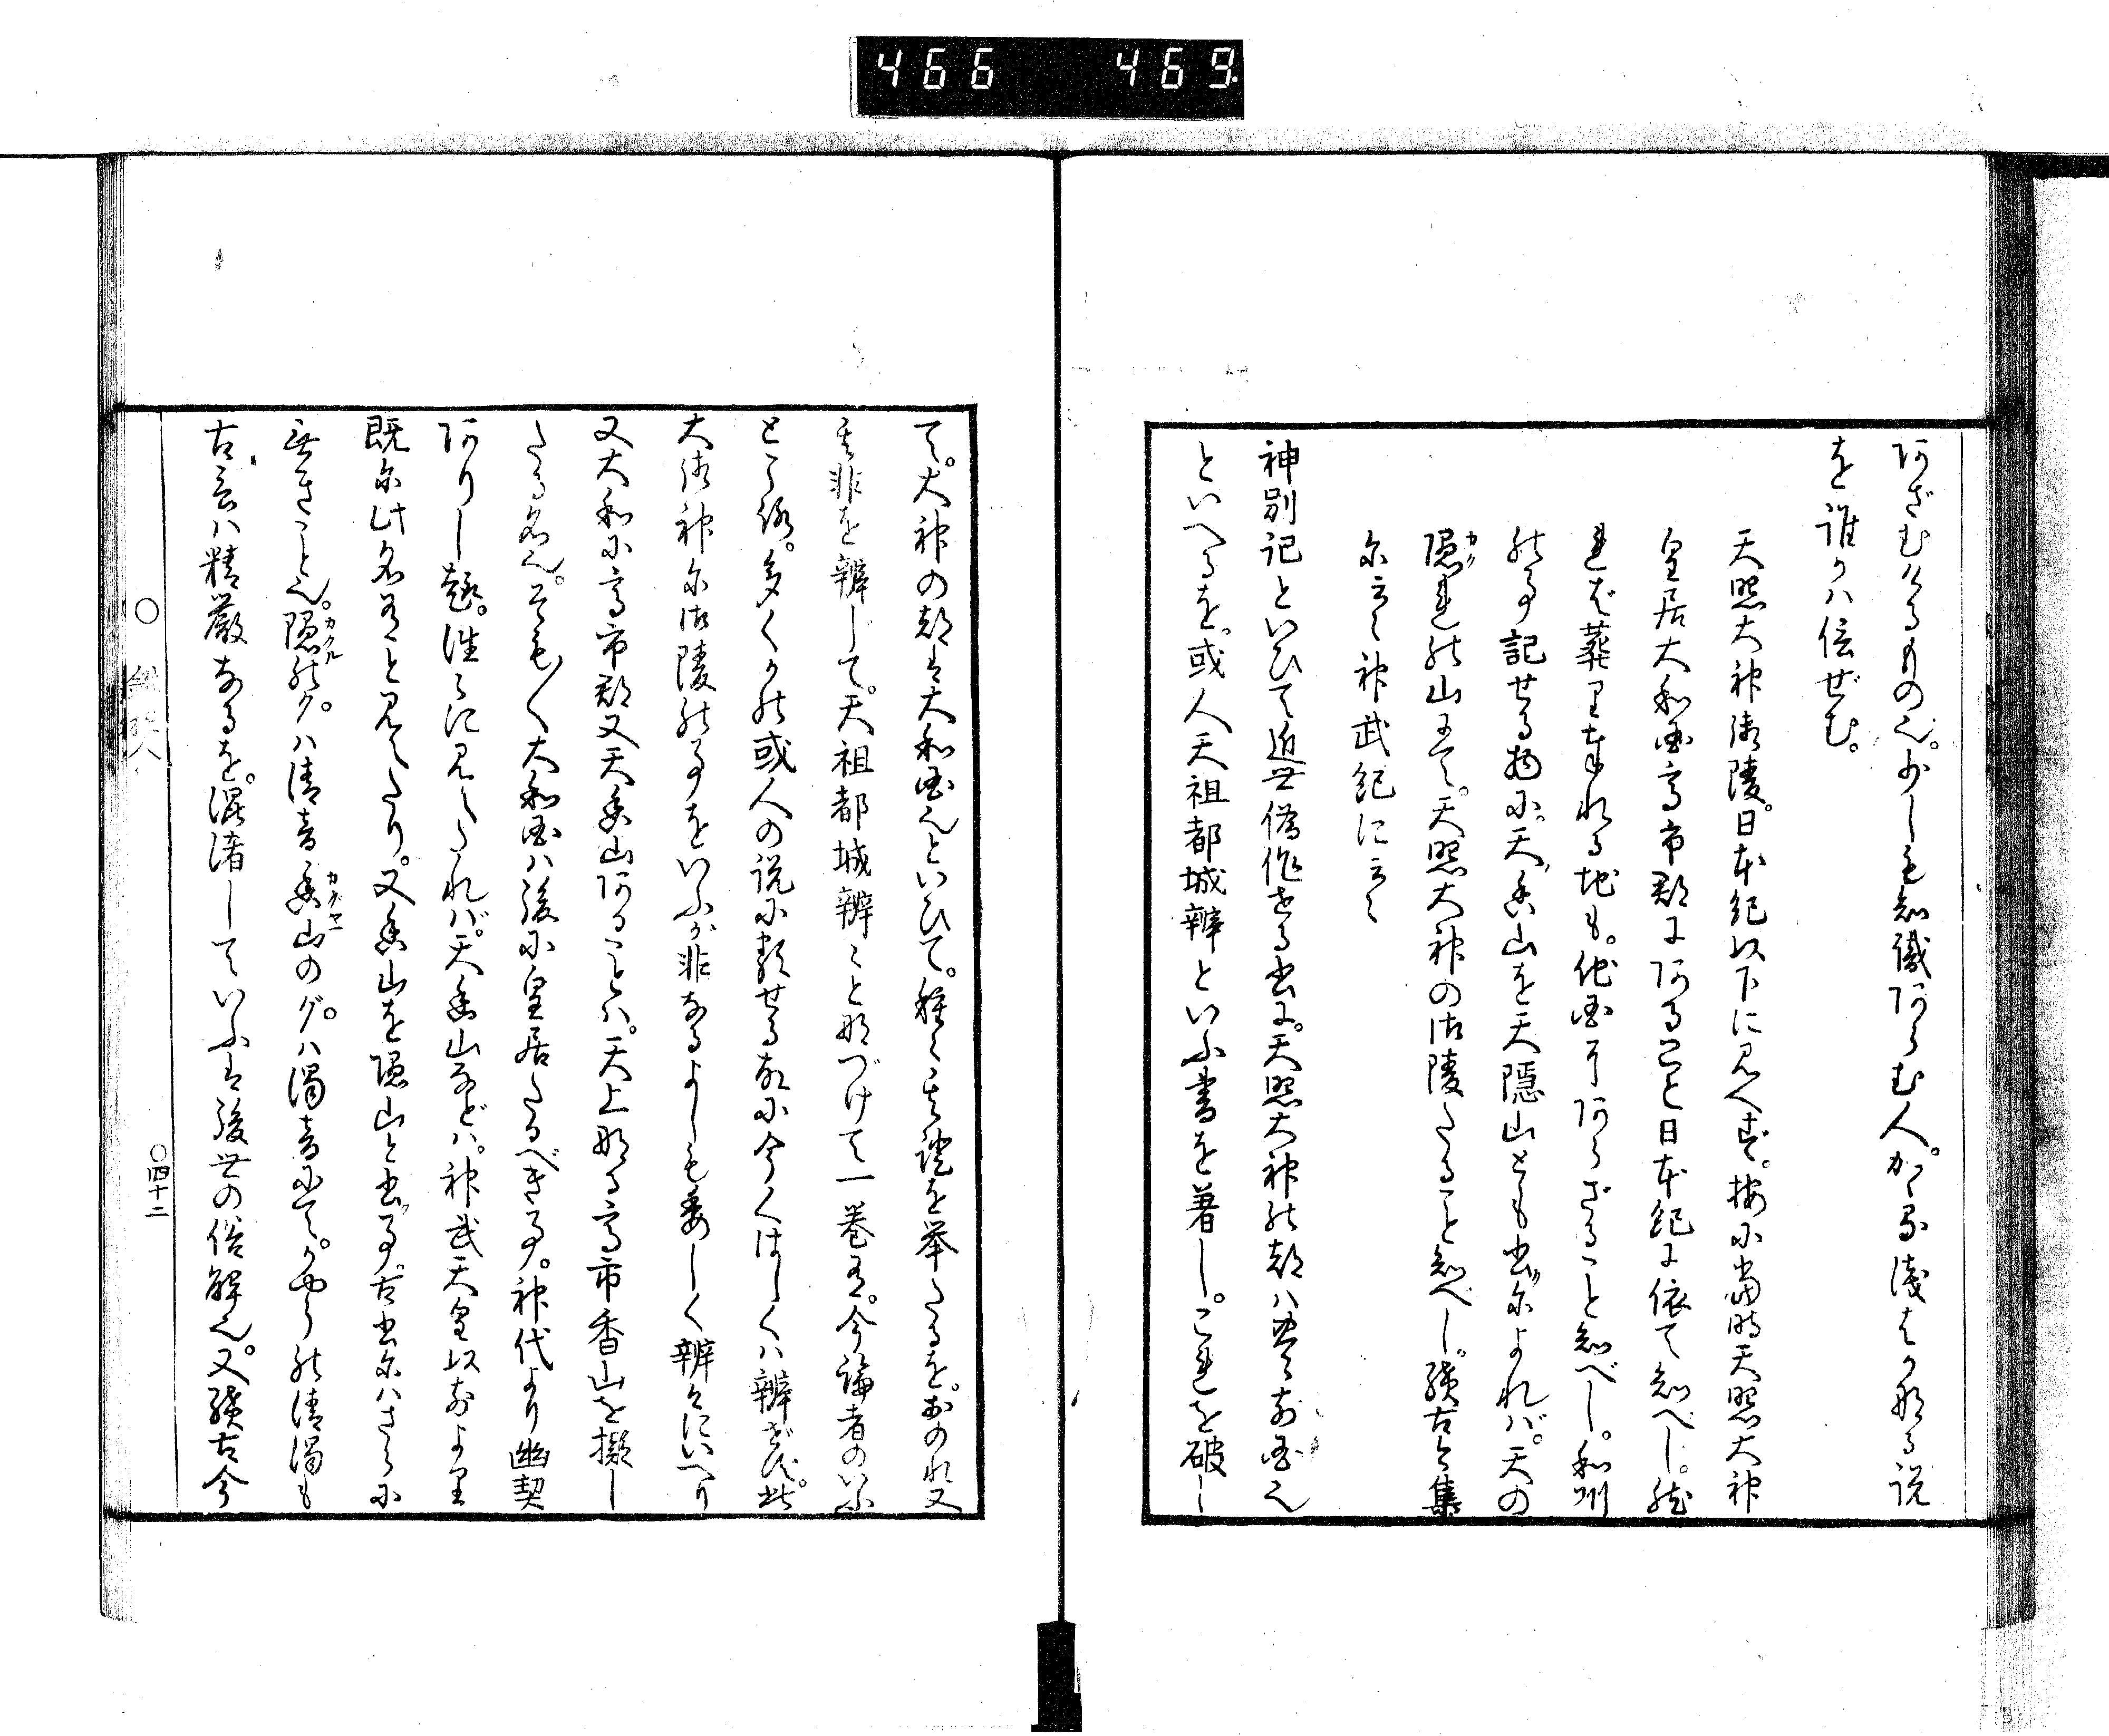 466 469
アざむけるもの也。少しも知識アらむ人。かゝる浅はかなる説
を誰かハ信ぜむ。
天照大神御陵。日本紀以下に見へず。按に当時天照大神
皇居大和国高市郡にアること日本紀に依て知べし。然
れば葬り奉れる地も。他国にアらざること知べし。和州
の事記せる物に。天香山を天隠山とも書るによれバ。天の
隠れの山にて。天照大神の御陵たること知べし。続古今集
に云々神武紀に云々
神別記といひて近世偽作せる書に。天照大神の都ハ豊前国也
といへるを。或人天祖都城辨といふ書を著し。これを破し
て。大神の都は大和国也といひて。種々其證を挙たるを。おのれ又
其非を辨じて。天祖都城辨々と名づけて一巻有。今論者のいふ
ところ。多くかの或人の説に類せる故に今くはしくハ辨ぜず。此
大御神に御陵の事をいふが非なるよしも委しく辨々にいへり
又大和に高市郡又天香山アることハ。天上なる高市香山を擬し
たる名也。そも〳〵大和国ハ後に皇居たるべき事。神代より幽契
アりし趣。往々に見えたれバ。天香山などハ。神武天皇以前より
既に此名有と見えたり。又香山を隠山と書る事。古書にハさらに
無きこと也。隠のク。ハ清音香山のグ。ハ濁音にて。かやうの清濁も
古言ハ精厳なるを。混淆していふは後世の俗解也。又続古今
〇四十二